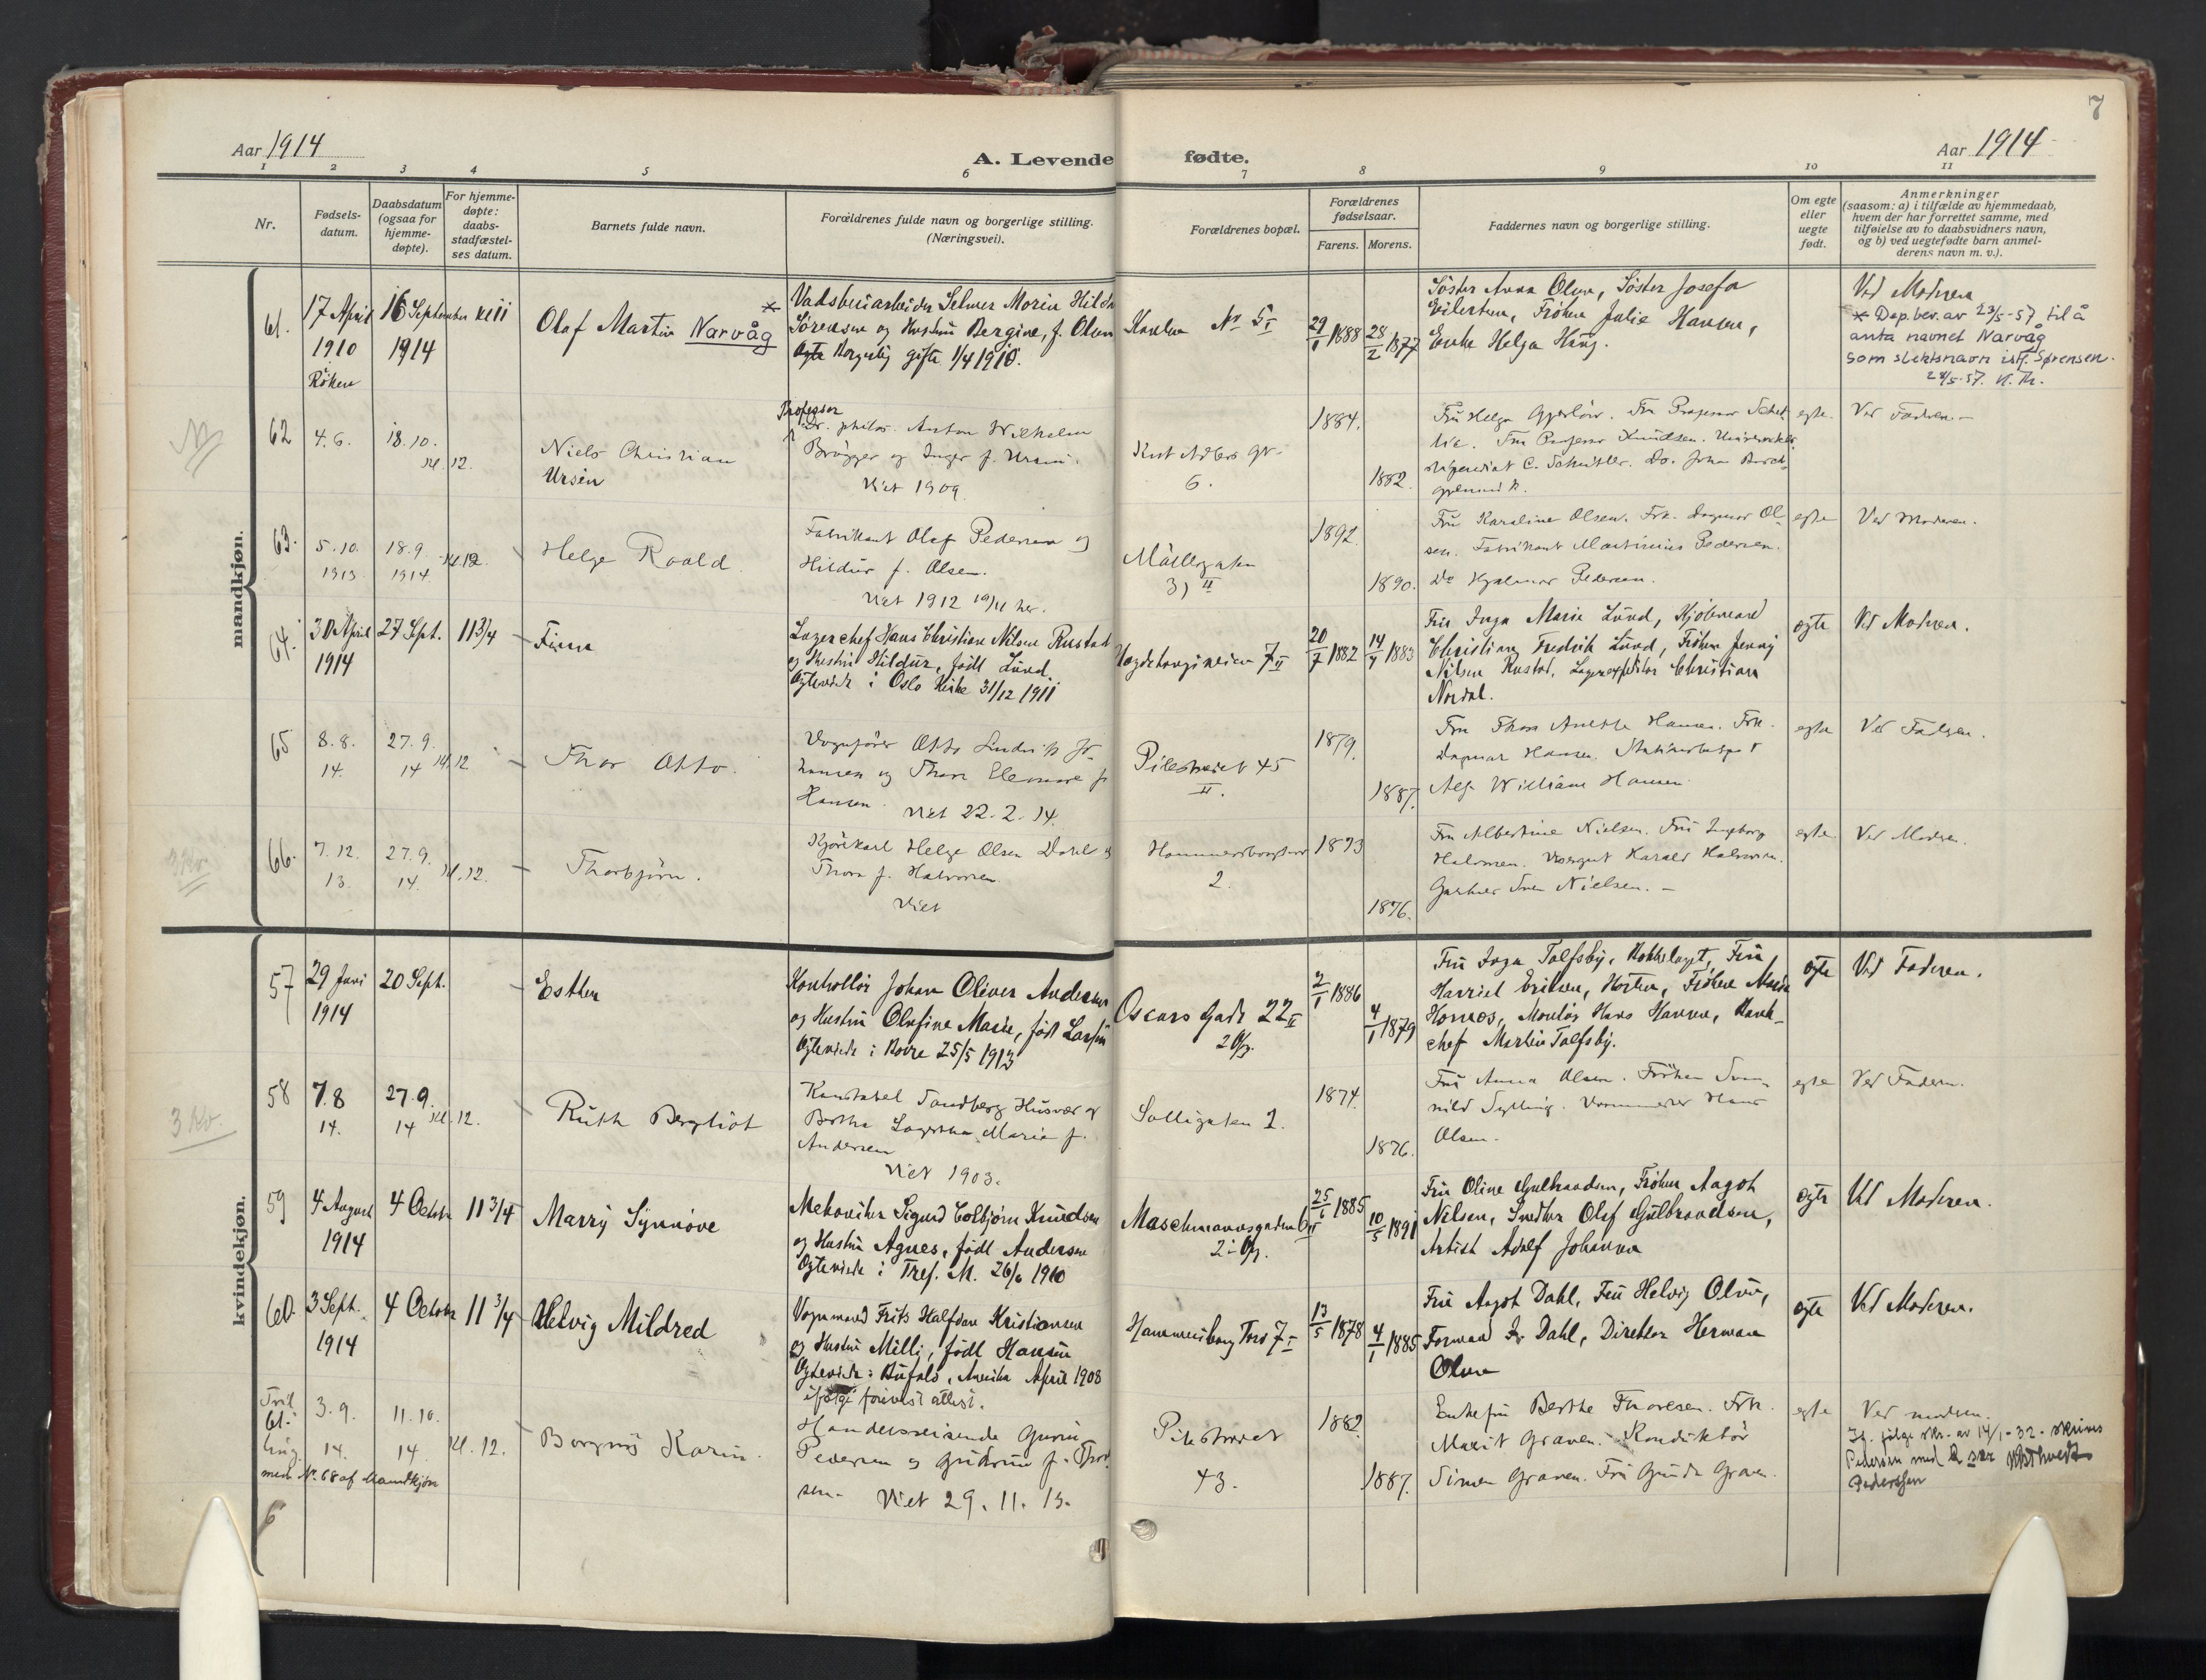 7
Aar 1914
A. Levende fødte.
Aar 1914
1 2 3 4 5 6 7 8 9 10 11
Nr.
Fødsels-
datum.
Daabsdatum
(ogsaa for
hjemme-
døpte).
For hjemme-
døpte:
daabs-
stadfæstel-
ses datum.
Barnets fulde navn.
Forældrenes fulde navn og borgerlige stilling.
(Næringsvei).
Forældrenes bopæl.
Forældrenes
fødselsaar.
Farens. Morens.
Faddernes navn og borgerlige stilling.
Om egte
eller
uegte
født.
Anmerkninger
(saasom: a) i tilfælde av hjemmedaab,
hvem der har forrettet samme, med
tilføielse av to daabsvidners navn,
og b) ved uegtefødte barn anmel-
derens navn m. v.).
mandkjøn.
61.
17 April
1910
Röken
16 September
1914
Olaf Martin Narvåg
Sørensen og Hustru Bergine, f. Olsen
Borgerlig gifte 1/4 1910.
No 5 I
29/1 1888
28/2 1877
Söster Anna Olsen, Söster Josefa
Eilertsen, Fröken Julie Hansen,
Enke Helga Krog.
Ved Moderen
* Dep.bev. av 23/5-57 til å
anta navnet Narvåg
som slektsnavn istf. Sørensen.
62
4. 6.
18. 10.
kl. 12.
Niels Christian
Ursin
Professor
Dr. philos. Anton Wilhelm
Brøgger og Inger f. Ursin.
Viet 1909
Kort Adlers gt.
6.
1884.
1882.
egte.
Ved Faderen. -
63.
5. 10.
1913
18. 9.
1914
kl. 12
Helge Roald.
Fabrikant Olaf Pedersen og
Hildur f. Olsen.
Viet 1912
Möllergaten
1892.
1890.
Fru Karoline Olsen. Frk. Dagmar Ol-
sen. Fabrikant Martinius Pedersen.
Do Hjalmar Pedersen.
egte
Ved Moderen.
64.
30 April
1914
27 Sept.
11 3/4
Finn
Lagerchef Hans Christian Nilsen Rustad
og Hustru Hildur, født Lund.
Ægteviede i Oslo Kirke 31/12 1911
20/7 1882
1883
Fru Inga Marie Lund, Kjøbmand
Christian Fredrik Lund, Fröken Jenny
Nilsen Rustad, Lagerexpeditør Christian
Nordal.
ægte
Ved Moderen.
65
8. 8.
14.
27. 9.
14
kl. 12
Thor Otto.
Vognfører Otto Ludvig Jo-
hansen og Thora Eleonore f.
Hansen. Viet 22. 2. 14.
Pilestredet 45
II.
1879.
1887.
Dagmar Hansen.
Alf William Hansen
egte
Ved Faderen.
66.
7. 12.
13.
27. 9.
14.
kl. 12.
Thorbjörn.
Kjörekarl Helge Olsen Dahl og
Thora f. Halvorsen.
Viet
2.
1873
1876.
Fru Albertine Nielsen. Fru Ingeborg
Halvorsen. Visergut Harald Halvorsen.
Gartner Sven Nielsen. -
egte
Ved Moderen.
kvindekjøn.
57
29 Juni
1914
20 Sept.
Esther
Kontrollör Johan Oliver Andersen
og Hustru Olufine Marie, født Larsen
Ægteviede i Borre 25/5 1913
Oscars gade 22 II
2 Opg.
2/1 1886
4/1 1879
Fru Inga Tolfsby, Fru
Harriet Eriksen, Horten, Fröken Marie
Hornes, Montör Hans Hansen,
chef Martin Tolfsby.
ægte
Ved Faderen.
3 Kv.
58
7. 8
14.
27. 9.
14
kl. 12.
Ruth Bergliot
Konstabel Sandberg Husvær og
Bertha Lagertha Marie f.
Andersen
Viet 1903.
Solligaten 2.
1874.
1876.
Fru Anna Olsen. Fröken
Olsen.
egte
Ved Faderen.
59
4 August
1914
4 October
11 3/4
Marry Synnöve
Sigurd Colbjörn Knudsen
og Hustru Agnes, født Andersen
Ægteviede i Tref. M. 26/6 1910
Maschmannsgaden 6 II
2 Opg.
25/1 1885
10/5 1891
Fru Oline Gulbrandsen, Fröken Aagot
Nilsen, Snedker Olaf Gulbrandsen,
Artist Adolf Johansen
ægte
Ved Moderen.
60.
3 Sept.
1914
4 October
11 3/4
Helvig Mildred
Vognmand Frits Halfdan Kristiansen
og Hustru Milli, født Hansen
Ægteviede i Bufalo, Amerika April 1908
ifølge forevist attest.
Hammersborg Torv 7 I
13/5 1878
4/1 1885
Fru Aagot Dahl, Fru Helvig Olsen,
Formand Dahl, Direktör Herman
Olsen
ægte
Ved Moderen.
Tvil
61.
ling
med No. 68 af Mandkjøn
3. 9.
14.
11. 10.
14
kl. 12.
Borgny Karin.
Handelsreisende
Pedersen og Gudrun f. Thore
sen. Viet 29. 11. 13.
Pilestredet
43.
1882
1887.
Enkefru Berthe Thoresen. Frk.
Marit Graven. Konduktör
Simen Graven. Fru Gunda Graven.
egte
Ved moderen.
If. følge skr. av 14/1-32 skrives
Pedersen med
Pederssen
6